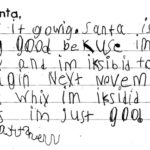 anta,
it gowig. Santa is
good bekuse im
and im iksibid to
oin Next Novem
whix im iksidid
s im just good